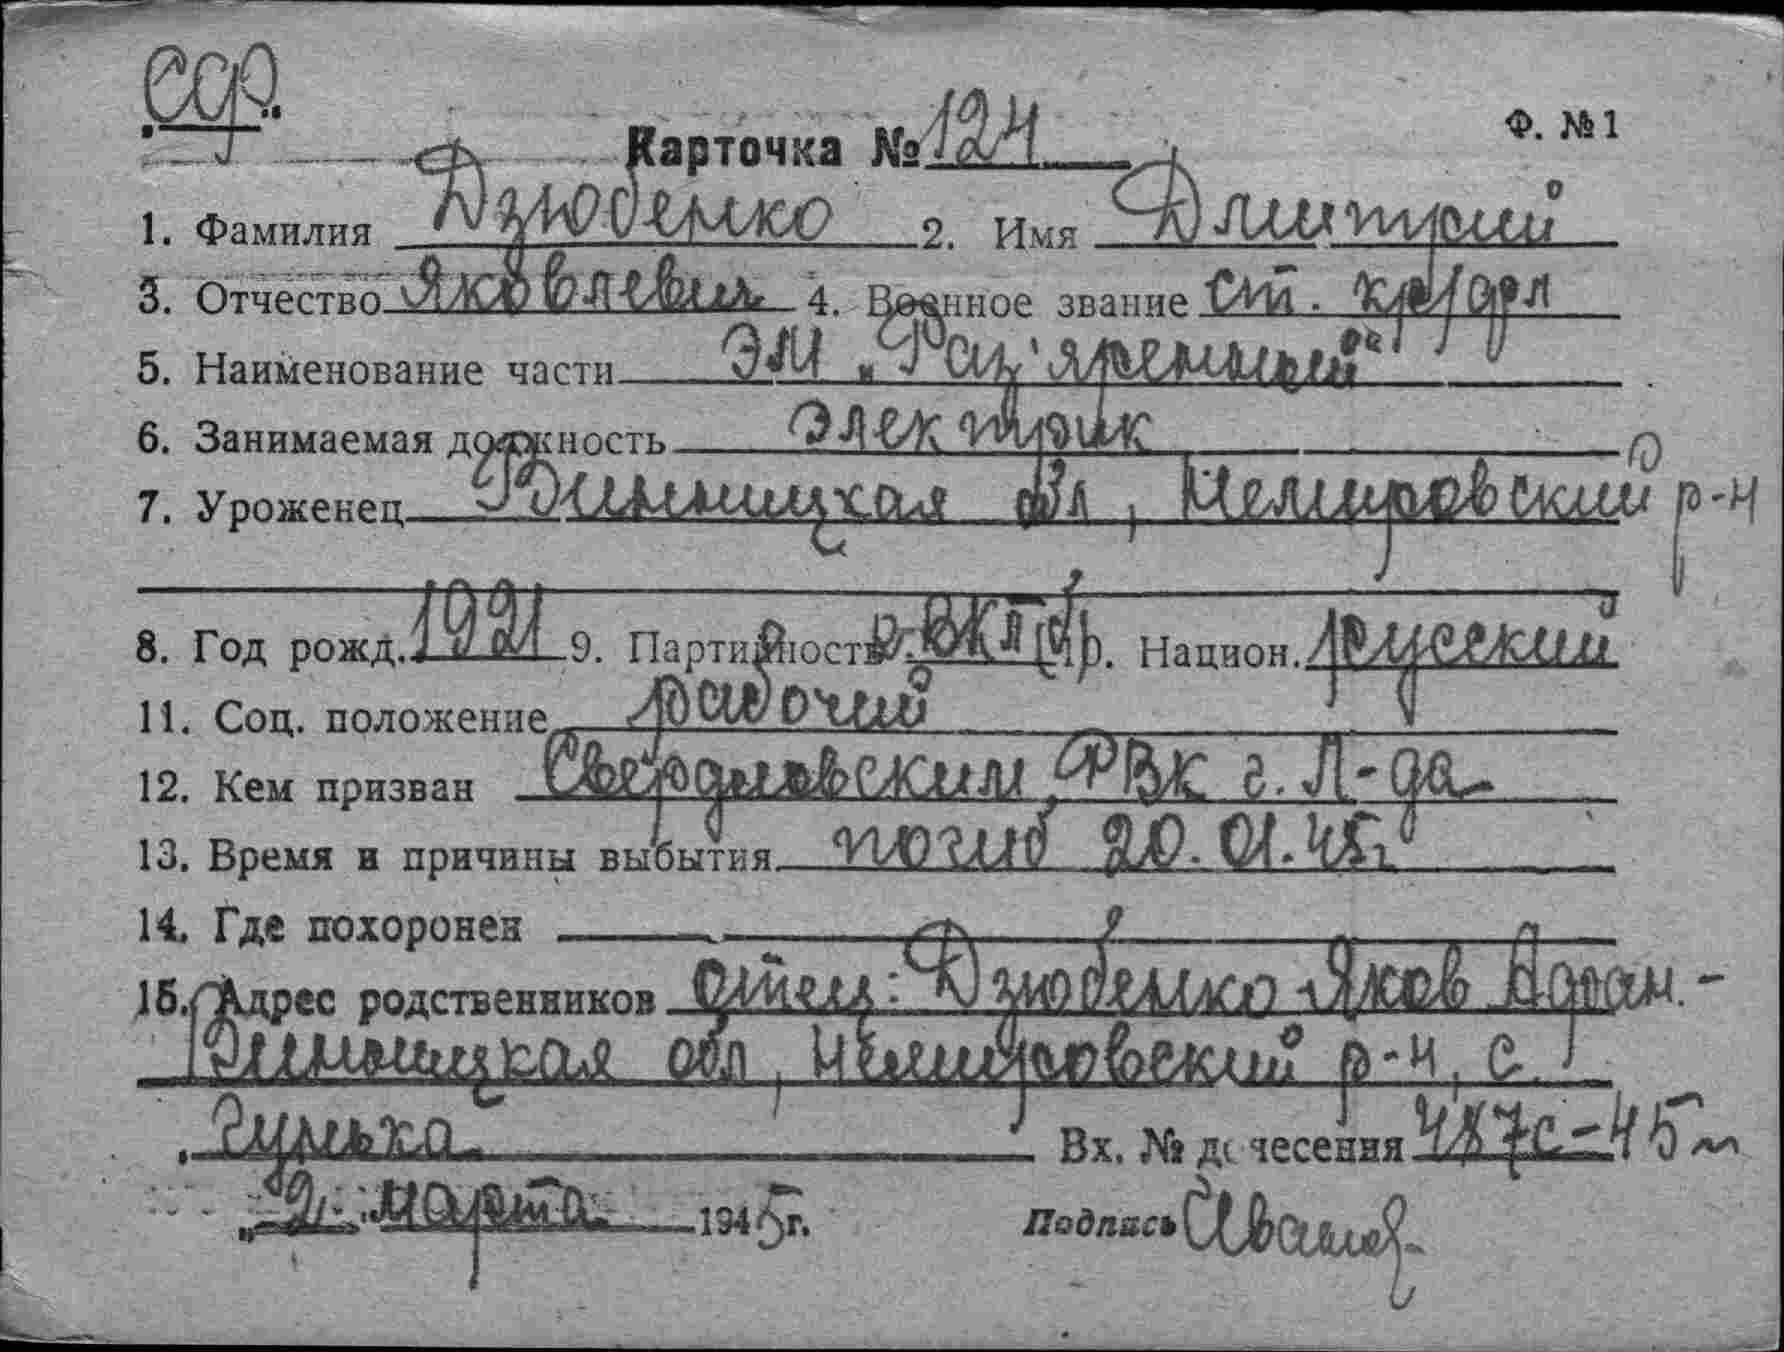 ССР.
Карточка № 124
Ф. №1
1. Фамилия Дзюбенко 2. Имя Дмитрий
3. Отчество Яковлевич 4. Военное звание ст. кр/фл
5. Наименование части ЭМ „Раз'яренный"
6. Занимаемая должность электрик
7. Уроженец Винницкая обл, Немировский р-н
8. Год рожд. 1921 9. Партийность ВКП(б) 10. Национ. русский
11. Соц. положение рабочий
12. Кем призван Свердловским РВК г. Л-да
13. Время и причины выбытия погиб 20.01.45г
14. Где похоронен
15. Адрес родственников отец: Дзюбенко Яков Абрам. -
Винницкая обл, Немировский р-н, с.
Гунька
Вх. № донесения 487с-45
„2" марта 1945г.
Подпись